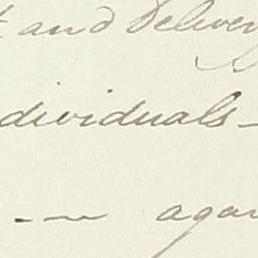 and Deliver
dividuals-
- -- agai